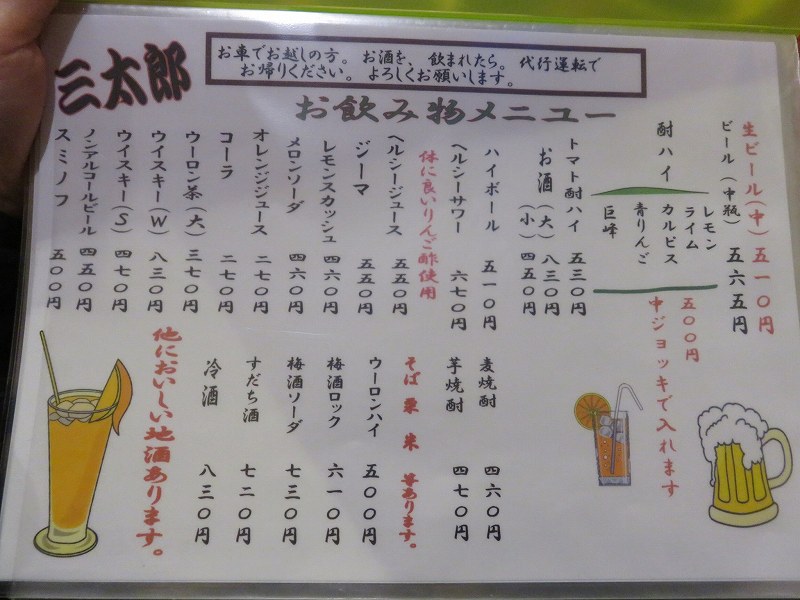 三太郎
お車でお越しの方。 お酒を、飲まれたら。 代行運転で
お帰りください。 よろしくお願いします。
お飲み物メニュー
生ビール(中) 五一〇円
ビール(中瓶) 五六五円
酎ハイ
レモン
ライム
カルピス
青りんご
巨峰
五〇〇円
中ジョッキで入れます
トマト酎ハイ 五三〇円
お酒(大) 八三〇円
(小) 四五〇円
ハイボール 五一〇円
ヘルシーサワー 六七〇円
体に良いりんご酢使用
ヘルシージュース 五五〇円
ジーマ 五五〇円
レモンスカッシュ 四六〇円
メロンソーダ 四六〇円
オレンジジュース 二七〇円
コーラ 二七〇円
ウーロン茶(大) 三七〇円
ウイスキー(W) 八三〇円
ウイスキー(S) 四七〇円
ノンアルコールビール 四五〇円
スミノフ 五〇〇円
麦焼酎 四六〇円
芋焼酎 四七〇円
そば 粟 米 等あります。
ウーロンハイ 五〇〇円
梅酒ロック 六一〇円
梅酒ソーダ 七三〇円
すだち酒 七二〇円
冷酒 八三〇円
他においしい地酒あります。